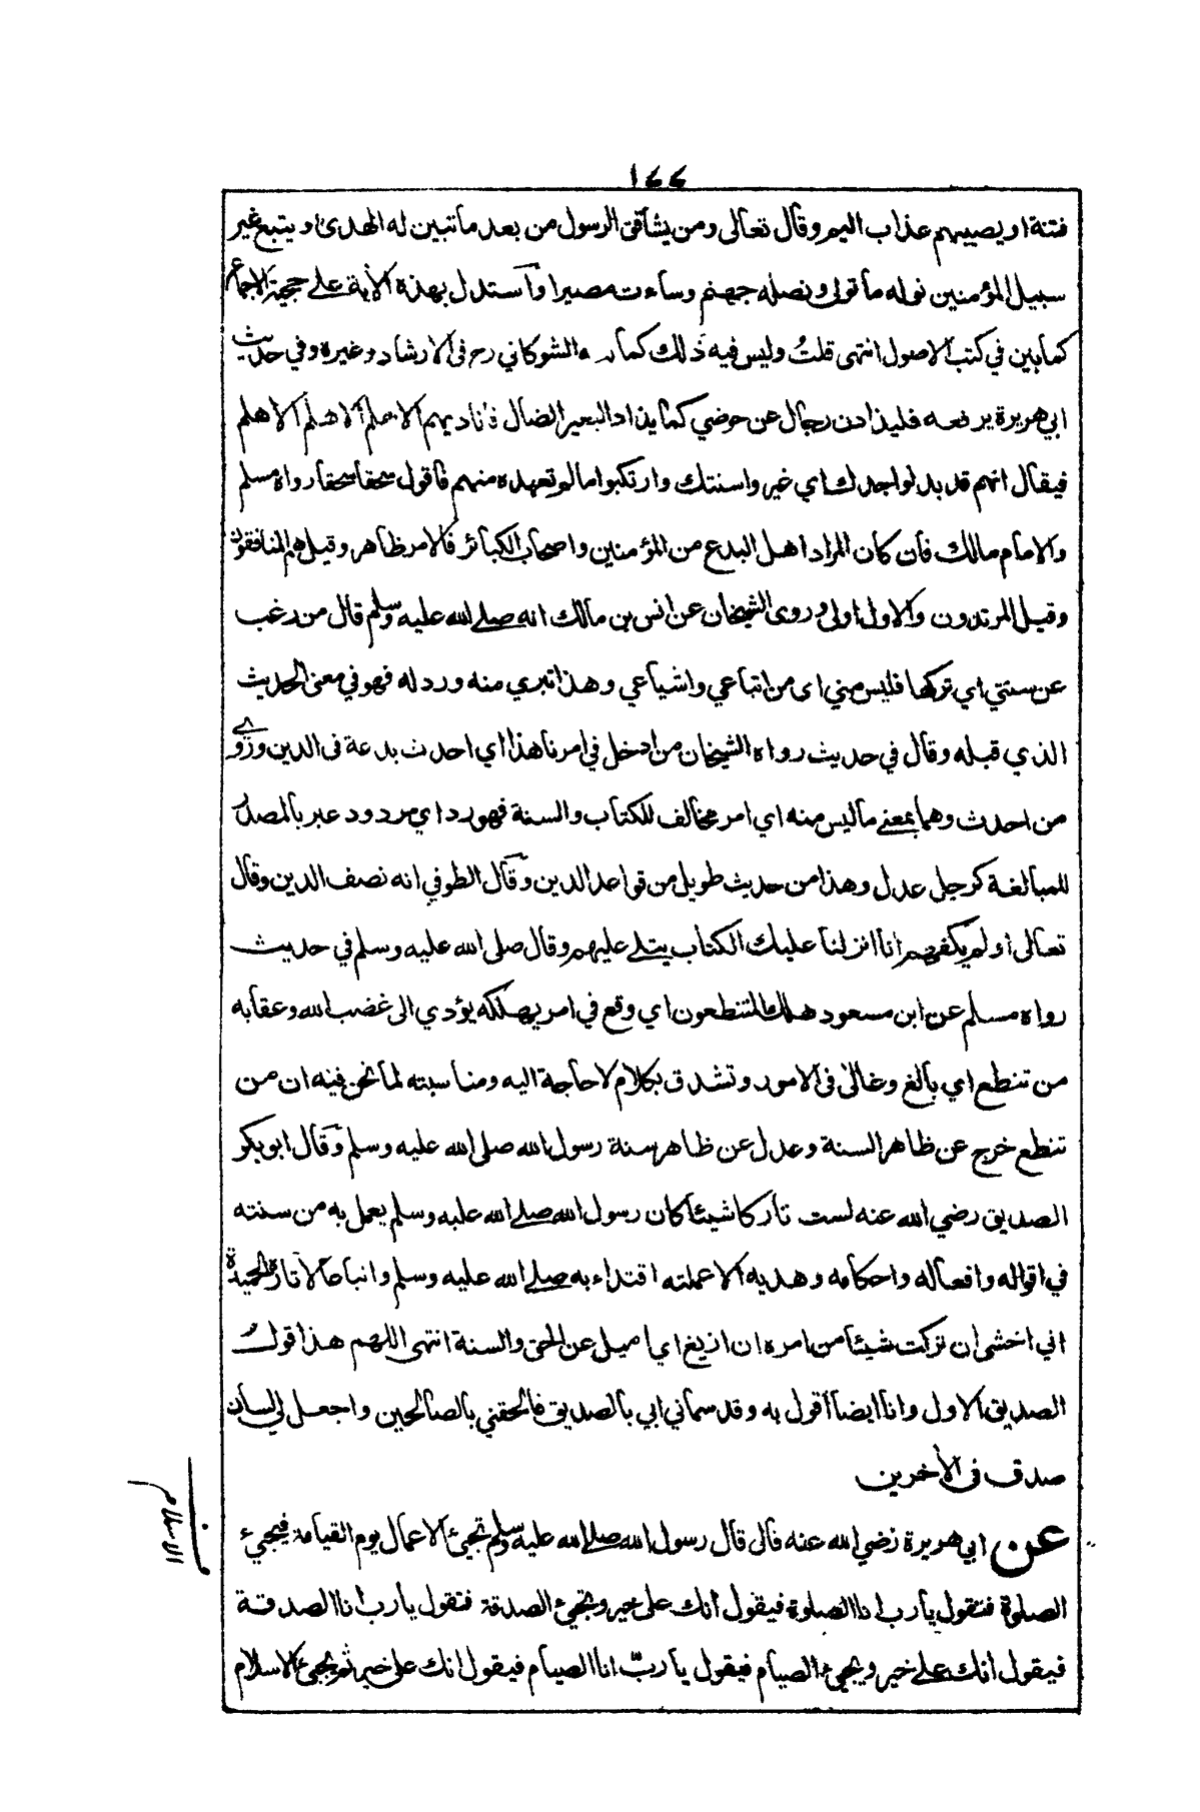 ١٦٦
فتنة او يصيبهم عذاب اليم وقال تعالى ومن يشاقق الرسول من بعد ما تبين له الهدى ويتبع غير
سبيل المؤمنين نوله ما تولى ونصله جهنم وساءت مصيرا واستدل بهذه الأية على حجية الاجماع
كما بين في كتب الاصول انتهى قلتُ وليس فيه ذلك كما الشوكاني رح فى الارشاد وغيره وفي حديث
ابي هريرة يرفعه فليذادن رجال عن حوضي كما يذاد البعير الضال فاناديهم الا هلم الا هلم الا هلم
فيقال انهم قد بدلوا بعدك اي غيروا سنتك وارتكبوا ما لم تعهده منهم فاقول سحقا سحقا رواه مسلم
والامام مالك فان كان المراد اهل البدع من المؤمنين واصحاب الكبائر فالامر ظاهر وقيل هم المنافقون
وقيل المرتدون والاول اولى وروى الشيخان عن انس بن مالك انه صلى الله عليه وسلم قال من رغب
عن سنتي اي تركها فليس مني اى من اتباعي واشياعي وهذا تبري منه ورد له فهو في معنى الحديث
الذي قبله وقال في حديث رواه الشيخان من ادخل في امرنا هذا اي احدث بدعة فى الدين وروى
من احدث وهما بمعنى ما ليس منه اي امر مخالف للكتاب والسنة فهو رد اي مردود عبر بالمصدر
للمبالغة كرجل عدل وهذا من حديث طويل من قواعد الدين وقال الطوفي انه نصف الدين وقال
تعالى اولم يكفهم انا انزلنا عليك الكتاب يتلى عليهم وقال صلى الله عليه وسلم في حديث
رواه مسلم عن ابن مسعود هلك المتنطعون اي وقع في امر يهلكه يؤدي الى غضب الله وعقابه
من تنطع اي بالغ وغالى فى الامور وتشدق بكلام لا حاجة اليه ومناسبته لما نحن فيه ان من
تنطع خرج عن ظاهر السنة وعدل عن ظاهر سنة رسول الله صلى الله عليه وسلم وقال ابو بكر
الصديق رضي الله عنه لست تاركا شيئا كان رسول الله صلى الله عليه وسلم يعمل به من سنته
في اقواله وافعاله واحكامه وهديه الا عملته اقتداء به صلى الله عليه وسلم واتباعا لآثاره الحميدة
اني اخشى ان تركت شيئا من امره ان ازيغ اي اميل عن الحق والسنة انتهى اللهم هذا قول
الصديق الاول وانا ايضا اقول به وقد سماني ابي بالصديق فالحقني بالصالحين واجعل لي لسان
صدق فى الأخرين
عن ابي هريرة رضي الله عنه قال قال رسول الله صلى الله عليه وسلم تجيئ الاعمال يوم القيامة فيجيئ
الصلوة فتقول يا رب انا الصلوة فيقول انك على خير وتجيئ الصدقة فتقول يا رب انا الصدقة
فيقول انك على خير ويجيئ الصيام فيقول يا ربّ انا الصيام فيقول انك على خير ثم يجيئ الاسلام
الاسلام